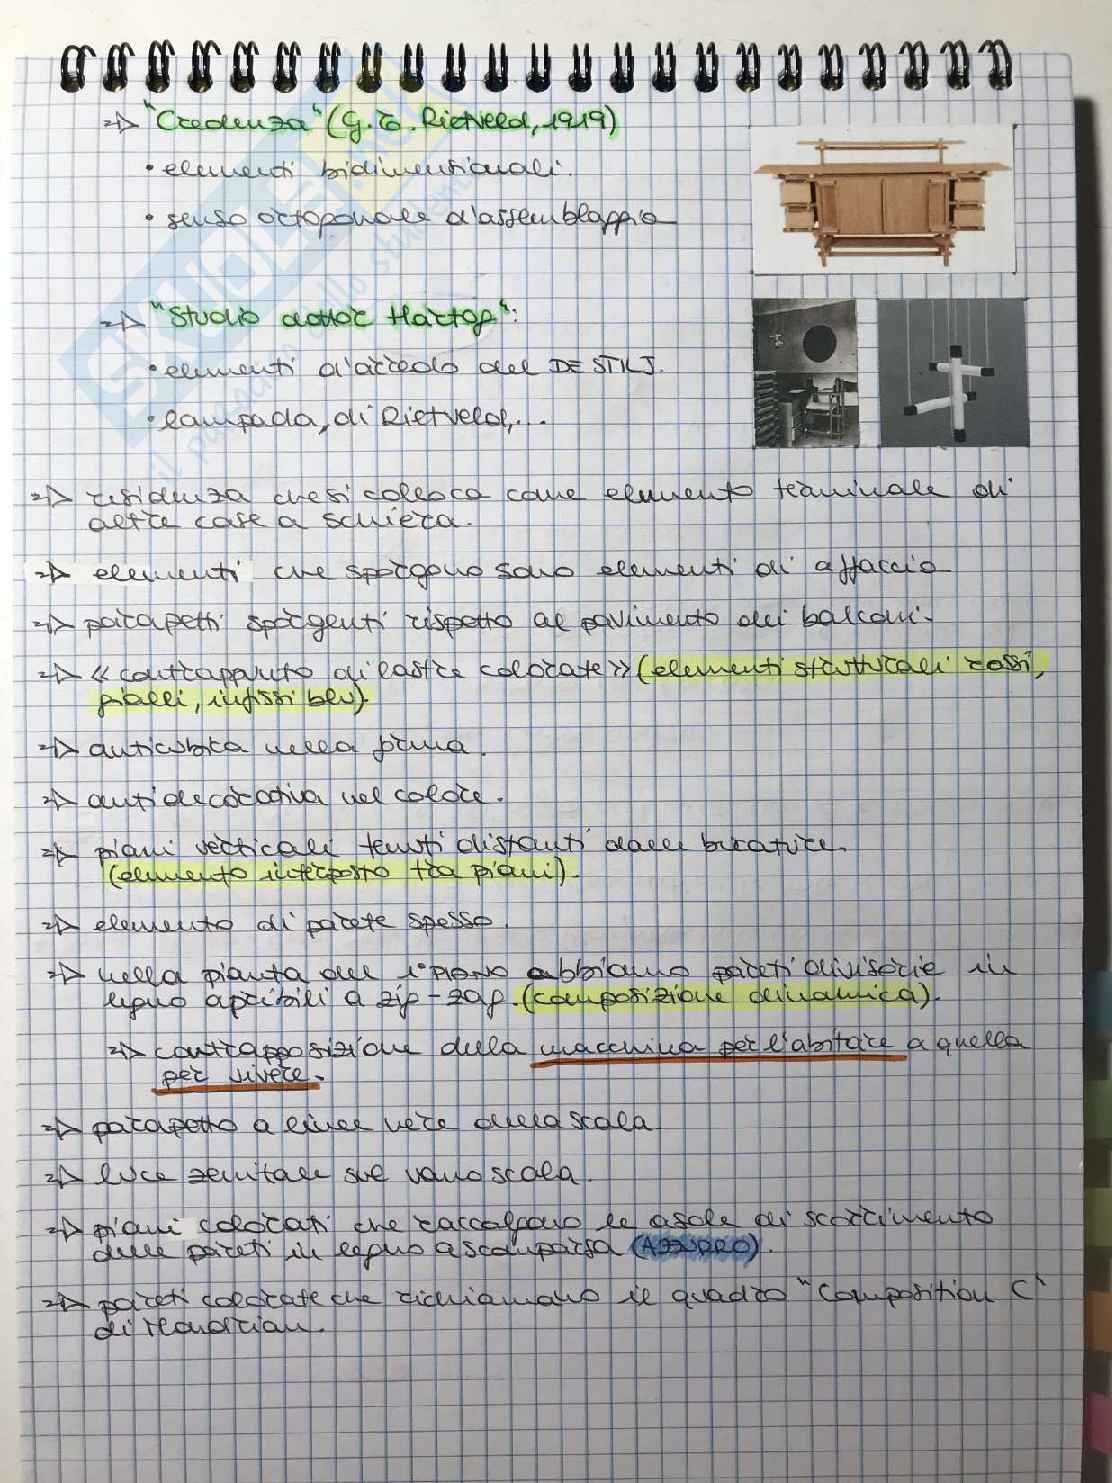 => "Credenza" (G.T. Rietveld, 1919)
• elementi bidimensionali.
• senso ortogonale d'assemblaggio
=> "Studio dottor Hartog":
• elementi d'arredo del DE STILJ.
• lampada, di Rietveld,...
=> residenza che si colloca come elemento terminale di
altre case a schiera.
=> elementi che sporgono sono elementi di affaccio
=> parapetti sporgenti rispetto al pavimento dei balconi.
=> «contrappunto di lastre colorate» (elementi strutturali rossi,
gialli, infissi blu).
=> anticubica nella forma.
=> antidecorativa nel colore.
=> piani verticali tenuti distanti dalle bucature.
(elemento interposto tra piani).
=> elemento di parete spesso.
=> nella pianta del 1° PIANO abbiamo pareti divisorie in
legno apribili a zig-zag. (composizione dinamica).
=> contrapposizione della macchina per l'abitare a quella
per vivere.
=> parapetto a linee nere della scala
=> luce zenitale sul vano scala.
=> piani colorati che raccolgono le asole di scorrimento
delle pareti in legno a scomparsa (AZZURRO).
=> pareti colorate che richiamano il quadro "Composition C"
di Mondrian.
SKUOLA